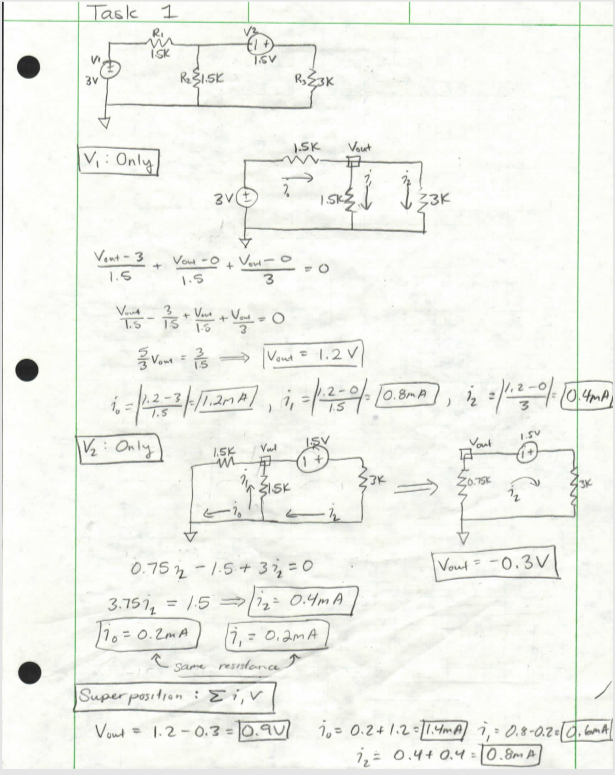 Task 1
R₁ V2
1.5K 1.5V
V1 3V R₂ 1.5K R₃ 3K
V₁ : Only
1.5K Vout
3V i₀ 1.5K i₁ i₂ 3K
(Vout - 3)/1.5 + (Vout - 0)/1.5 + (Vout - 0)/3 = 0
Vout/1.5 - 3/1.5 + Vout/1.5 + Vout/3 = 0
5/3 Vout = 3/1.5 ⟹ Vout = 1.2 V
i₀ = |(1.2 - 3)/1.5| = 1.2mA , i₁ = |(1.2 - 0)/1.5| = 0.8mA , i₂ = |(1.2 - 0)/3| = 0.4mA
V₂ : Only
1.5K Vout 1.5V Vout 1.5V
i₁ 1.5K 3K ⟹ 0.75K i₂ 3K
i₀ i₂
0.75 i₂ - 1.5 + 3 i₂ = 0 Vout = -0.3V
3.75 i₂ = 1.5 ⟹ i₂ = 0.4mA
i₀ = 0.2mA i₁ = 0.2mA
same resistance
Superposition : Σ i, V
Vout = 1.2 - 0.3 = 0.9V i₀ = 0.2 + 1.2 = 1.4mA i₁ = 0.8 - 0.2 = 0.6mA
i₂ = 0.4 + 0.4 = 0.8mA